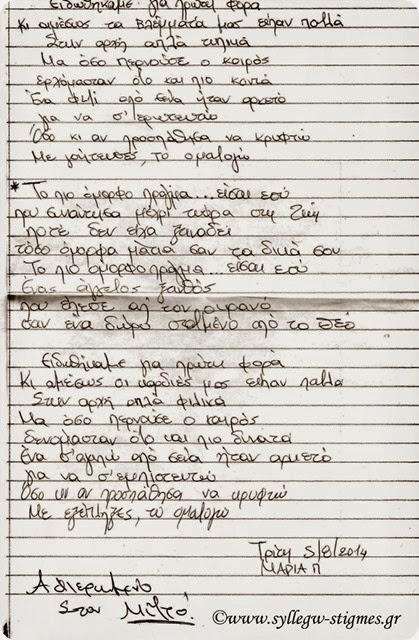 Ειδωθήκαμε για πρώτη φορά
Κι αμέσως τα βλέμματα μας είπαν πολλά
Στην αρχή απλά τυπικά
Μα όσο περνούσε ο καιρός
ερχόμασταν όλο και πιο κοντά
Ένα φιλί από σένα ήταν αρκετό
για να σ' ερωτευτώ
Όσο κι αν προσπάθησα να κρυφτώ
Με γοήτευσες, το ομολογώ
* Το πιο όμορφο πράγμα... είσαι εσύ
που συνάντησα μέχρι τώρα στη ζωή
ποτέ δεν είχα ξαναδεί
τόσο όμορφα μάτια σαν τα δικά σου
Το πιο όμορφο πράγμα... είσαι εσύ
Ένας άγγελος ξανθός
που έπεσε απ' τον ουρανό
σαν ένα δώρο σταλμένο από το Θεό
Ειδωθήκαμε για πρώτη φορά
Κι αμέσως οι καρδιές μας είπαν πολλά
Στην αρχή απλά φιλικά
Μα όσο περνούσε ο καιρός
δενόμασταν όλο και πιο δυνατά
Ένα σ'αγαπώ από σένα ήταν αρκετό
για να σ' εμπιστευτώ
Όσο κι αν προσπάθησα να κρυφτώ
Με εξέπληξες, το ομολογώ
Τρίτη 5/8/2014
ΜΑΡΙΑ Π
Αφιερωμένο
Στον
©www.syllegw-stigmes.gr